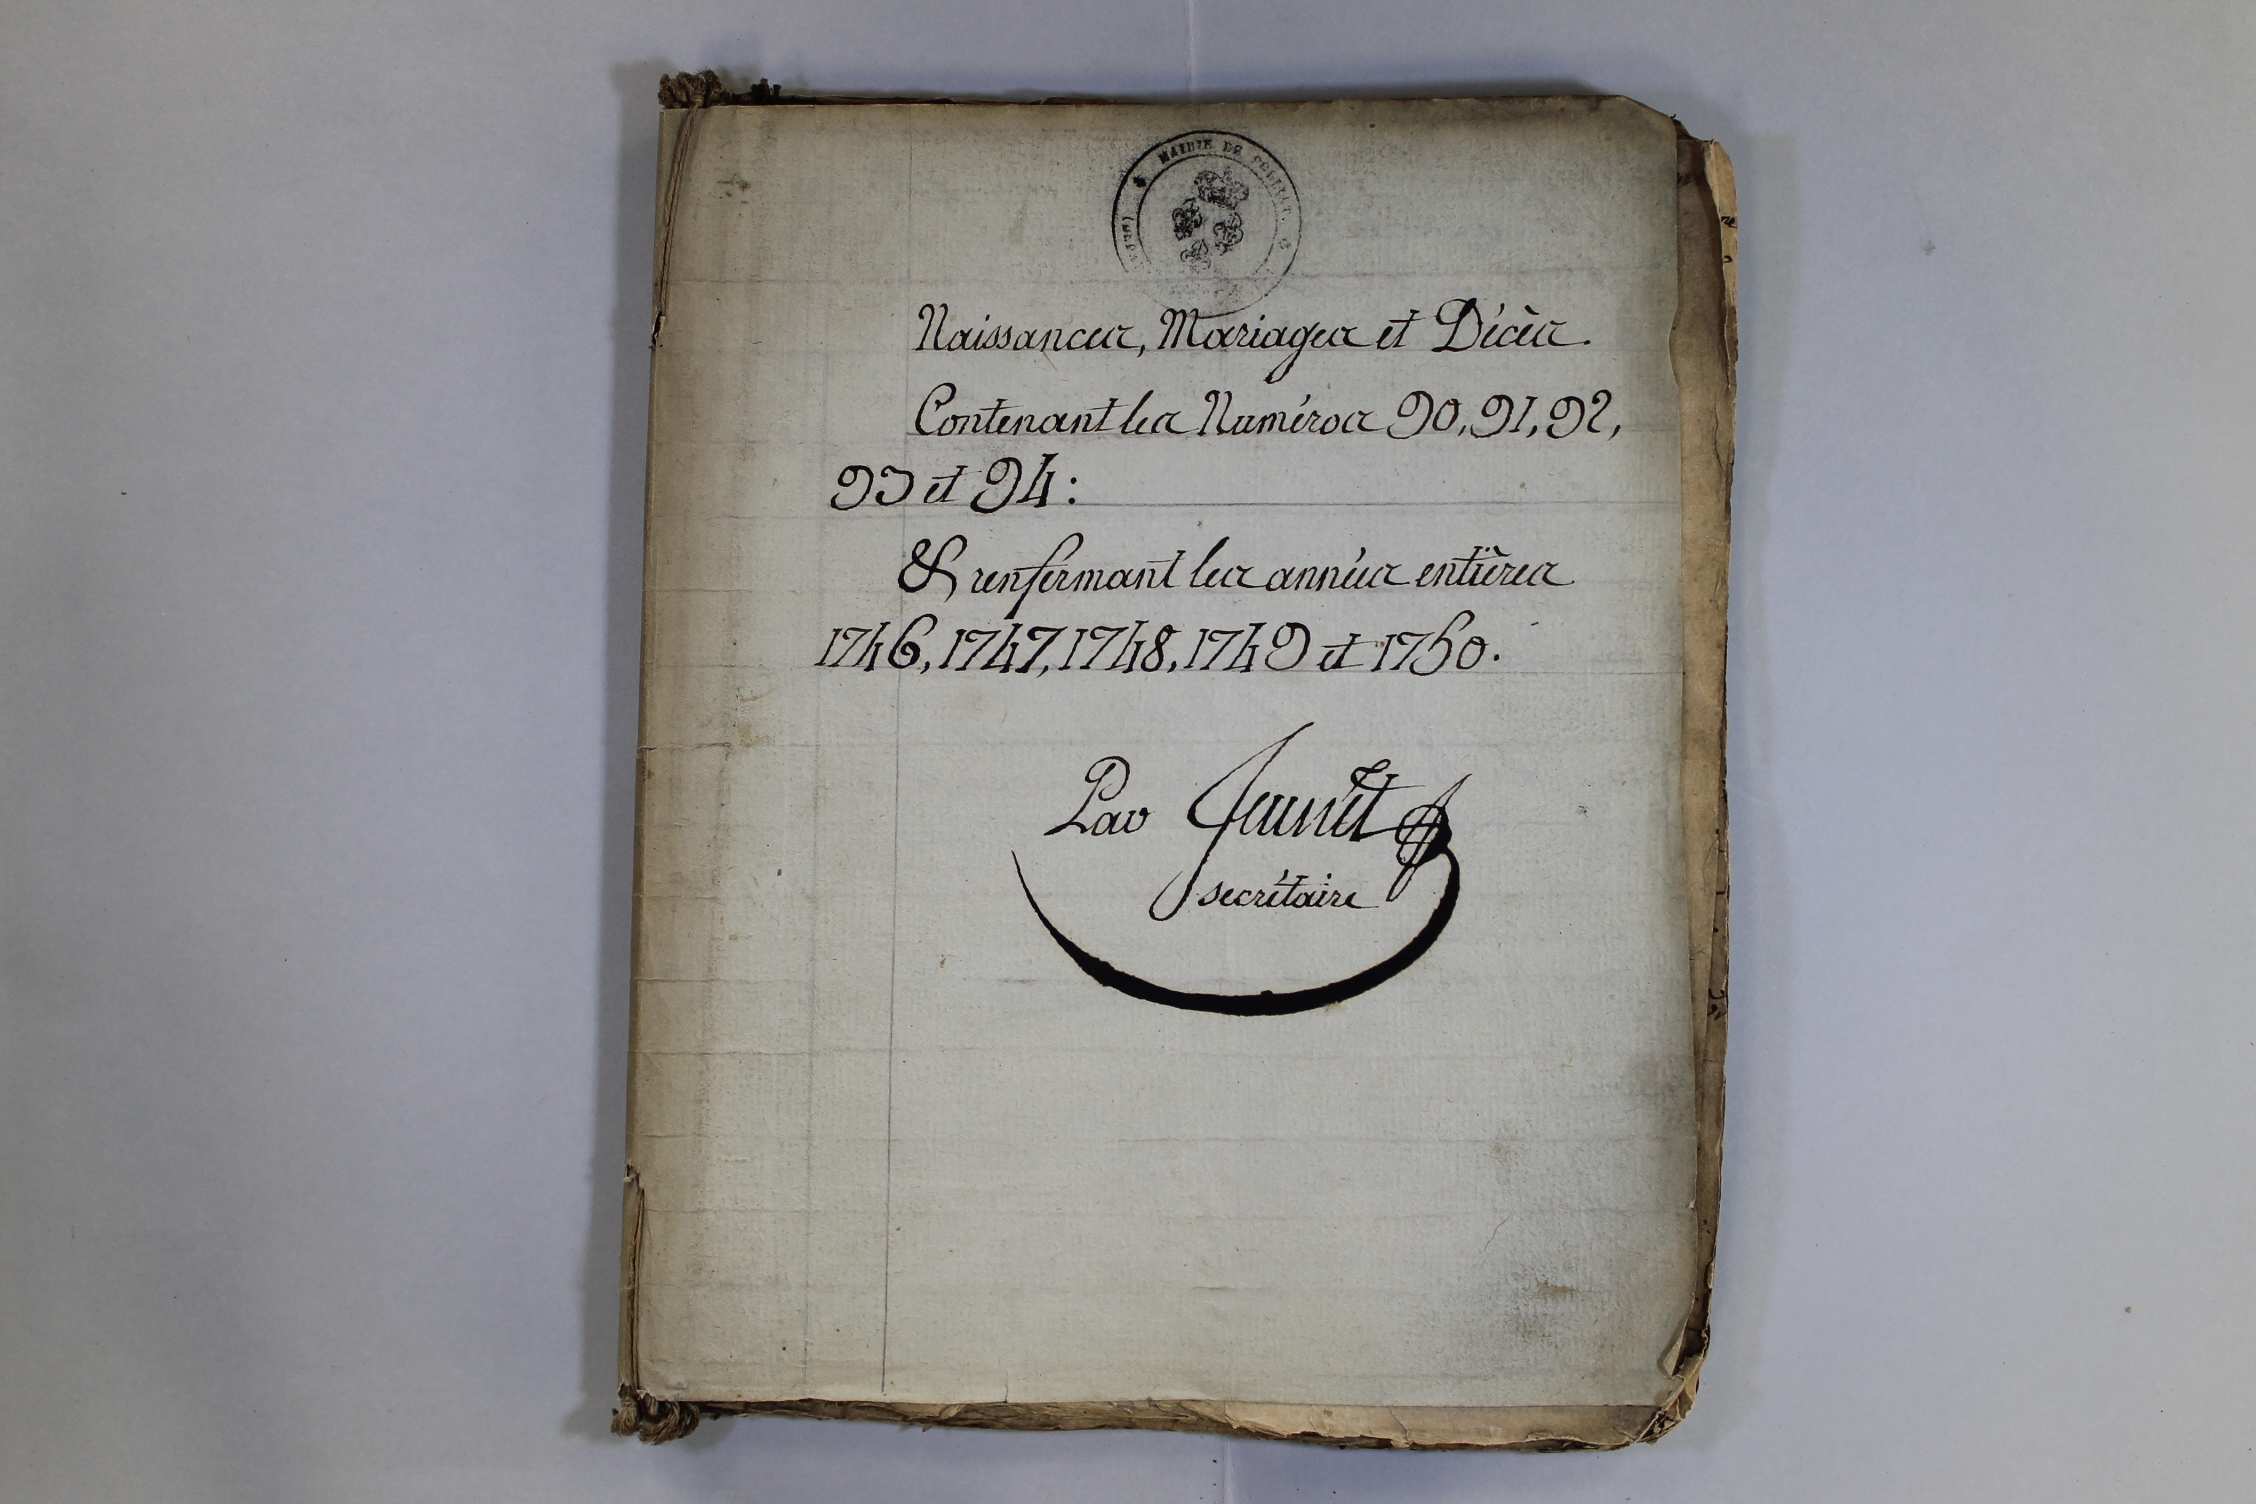 MAIRIE DE
Naissances, Mariages et Décès.
Contenant les Numéros 90, 91, 92,
93 et 94:
& renfermant les années entières
1746, 1747, 1748, 1749 et 1750.
Par
secrétaire